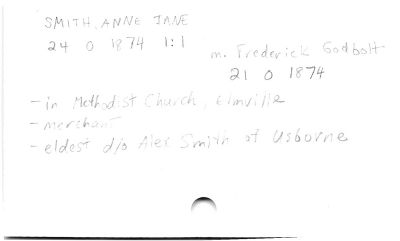 SMITH, ANNE JANE
24 O 1874 1:1
m. Frederick Godbolt
21 O 1874
- in Methodist Church, Elmville
- merchant
- eldest d/o Alex Smith of Usborne